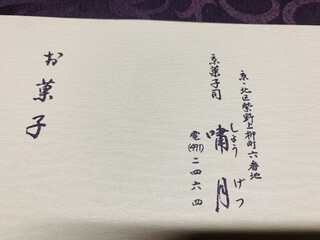 京・北区紫野上柳町六番地
京菓子司
嘯月
しょう げつ
電(491)二四六四
お菓子